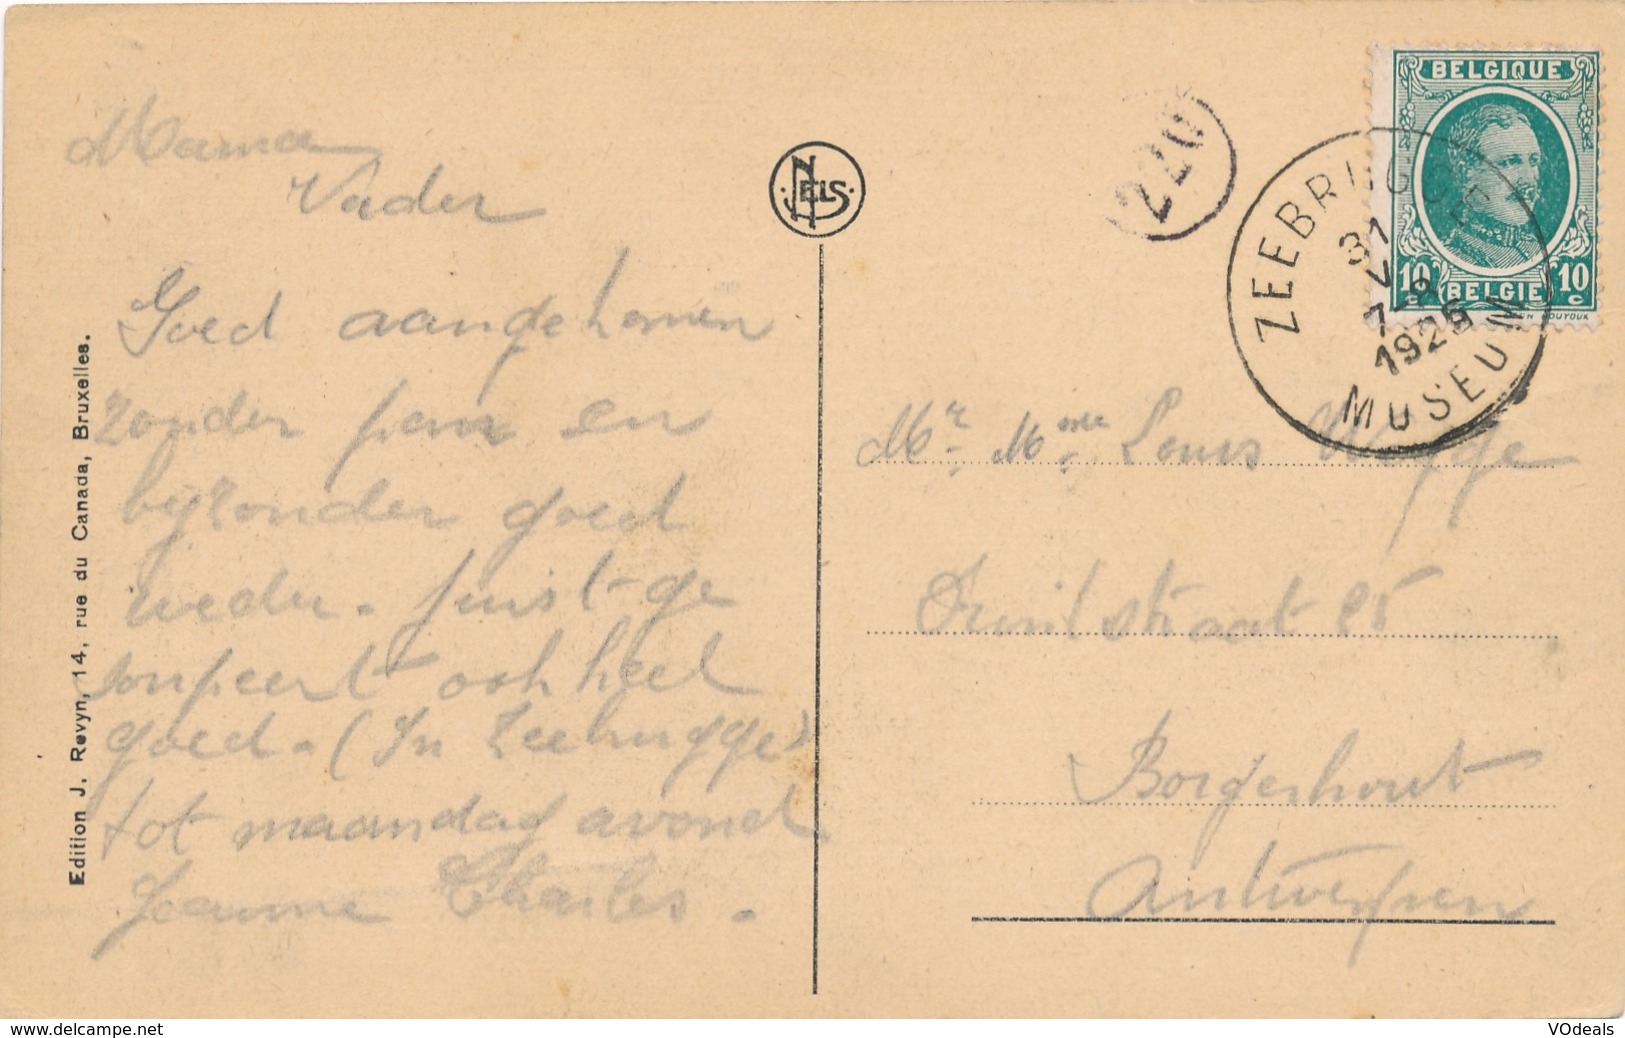 Mama
Vader
Goed aangekomen
zonder pena en
byzonder goed
weder. juist ge
soupeert ook heel
goed. (In Zeebrugge)
tot maandag avond.
Jeanne Charles.
Edition J. Revyn, 14, rue du Canada, Bruxelles.
NELS
220
BELGIQUE
10 c BELGIE 10 c
ZEEBRUGGE
31
1928
MUSEUM
Mr. Mme. Louis
Fruitstraat 25
Borgerhout
Antwerpen
VOdeals
www.delcampe.net